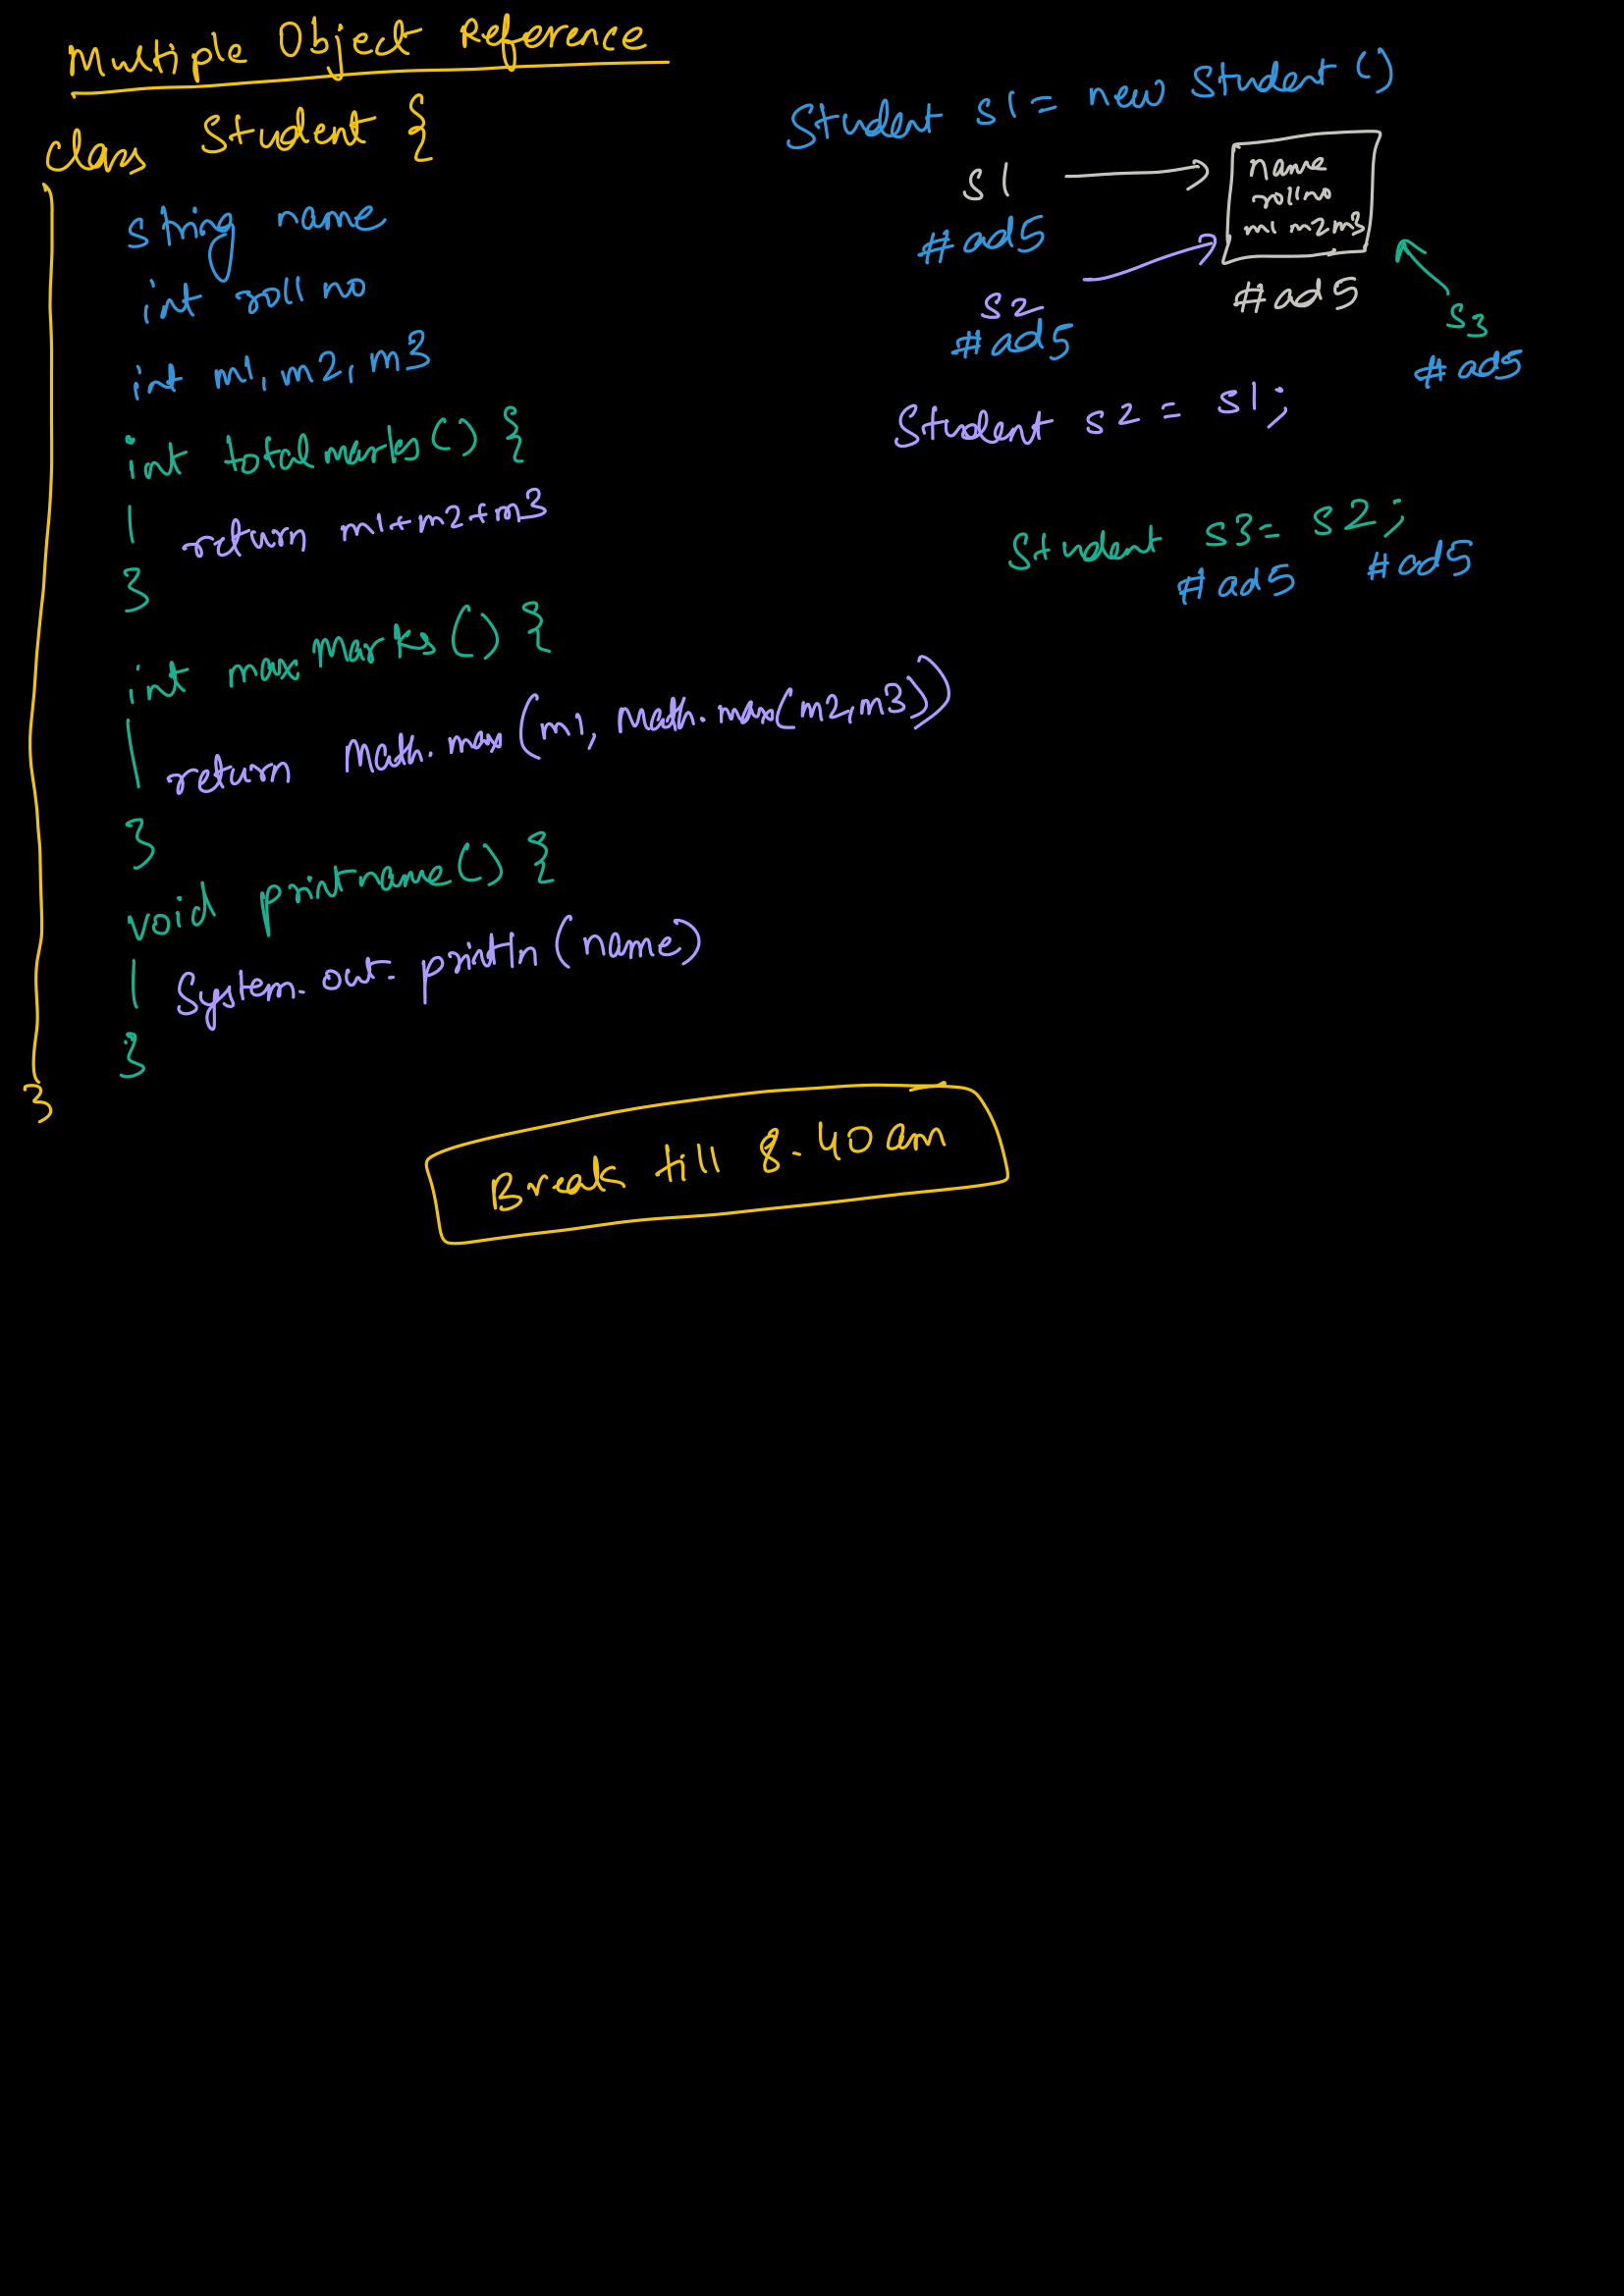 Multiple Object Reference
class Student {
string name
int roll no
int m1, m2, m3
int totalmarks() {
return m1+m2+m3
}
int maxMarks() {
return Math.max(m1, Math.max(m2,m3))
}
void printname() {
System.out.println(name)
}
}
Student s1 = new Student()
s1
#ad5
name
rollno
m1 m2 m3
#ad5
s2
#ad5
s3
#ad5
Student s2 = s1;
Student s3 = s2;
#ad5 #ad5
Break till 8.40am